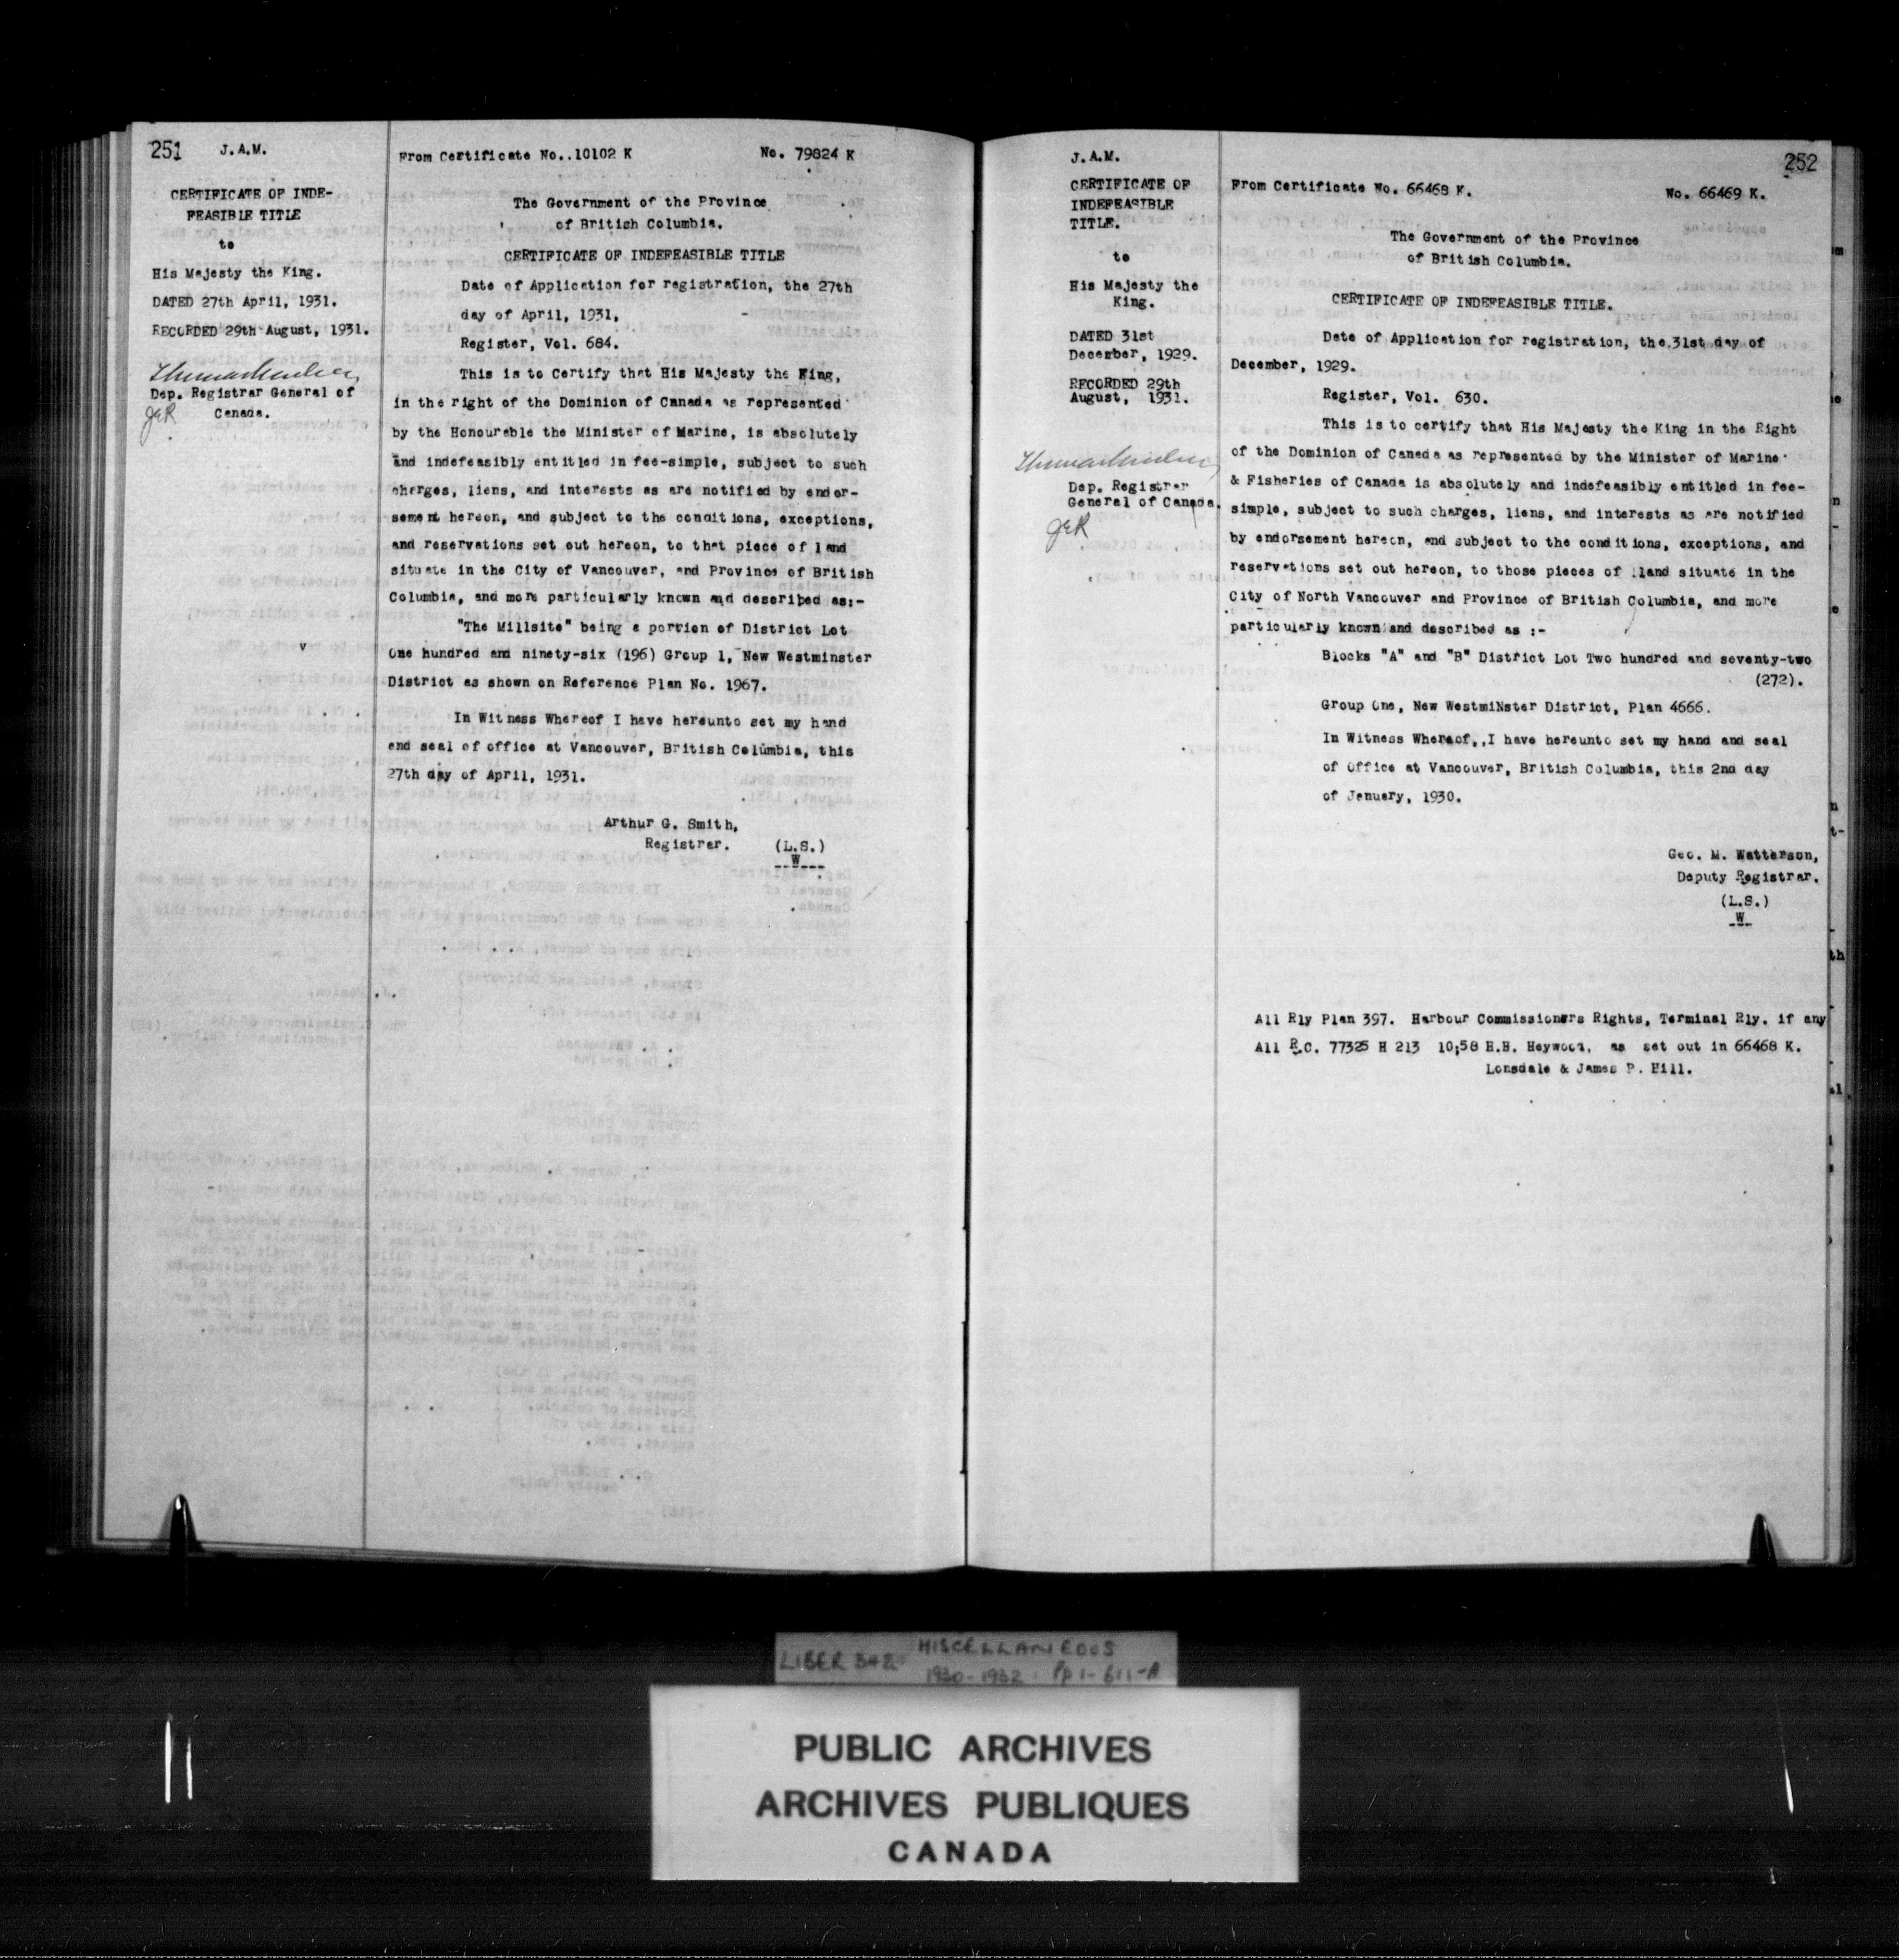 251 J.A.M.
CERTIFICATE OF INDE-
FEASIBLE TITLE
to
His Majesty the King.
DATED 27th April, 1931.
RECORDED 29th August, 1931.
Dep. Registrar General of
Canada.
From Certificate No..10102 K No. 79824 K
The Government of the Province
of British Columbia.
CERTIFICATE OF INDEFEASIBLE TITLE
Date of Application for registration, the 27th
day of April, 1931,
Register, Vol. 684.
This is to Certify that His Majesty the King,
in the right of the Dominion of Canada as represented
by the Honourable the Minister of Marine, is absolutely
and indefeasibly entitled in fee-simple, subject to such
charges, liens, and interests as are notified by endor-
sement hereon, and subject to the conditions, exceptions,
and reservations set out hereon, to that piece of land
situate in the City of Vancouver, and Province of British
Columbia, and more particularly known and described as:-
"The Millsite" being a portion of District Lot
v
One hundred and ninety-six (196) Group 1, New Westminster
District as shown on Reference Plan No. 1967.
In Witness Whereof I have hereunto set my hand
and seal of office at Vancouver, British Columbia, this
27th day of April, 1931.
Arthur G. Smith,
Registrar. (L.S.)
W
252
J.A.M.
CERTIFICATE OF
INDEFEASIBLE
TITLE.
to
His Majesty the
King.
DATED 31st
December, 1929.
RECORDED 29th
August, 1931.
Dep. Registrar
General of Canada.
From Certificate No. 66468 K. No. 66469 K.
The Government of the Province
of British Columbia.
CERTIFICATE OF INDEFEASIBLE TITLE.
Date of Application for registration, the 31st day of
December, 1929.
Register, Vol. 630.
This is to certify that His Majesty the King in the Right
of the Dominion of Canada as represented by the Minister of Marine
& Fisheries of Canada is absolutely and indefeasibly entitled in fee-
simple, subject to such charges, liens, and interests as are notified
by endorsement hereon, and subject to the conditions, exceptions, and
reservations set out hereon, to those pieces of land situate in the
City of North Vancouver and Province of British Columbia, and more
particularly known and described as :-
Blocks "A" and "B" District Lot Two hundred and seventy-two
(272).
Group One, New WestmiNster District, Plan 4666.
In Witness Whereof,,I have hereunto set my hand and seal
of Office at Vancouver, British Columbia, this 2nd day
of January, 1930.
Geo. M. Watterson,
Deputy Registrar.
(L.S.)
W
All Rly Plan 397. Harbour Commissioners Rights, Terminal Rly. if any
All R.C. 77325 H 213 10;58 H.B. Heywood, as set out in 66468 K.
Lonsdale & James P. Hill.
LIBER 342: MISCELLANEOUS
1930-1932: Pp 1-611-A
PUBLIC ARCHIVES
ARCHIVES PUBLIQUES
CANADA